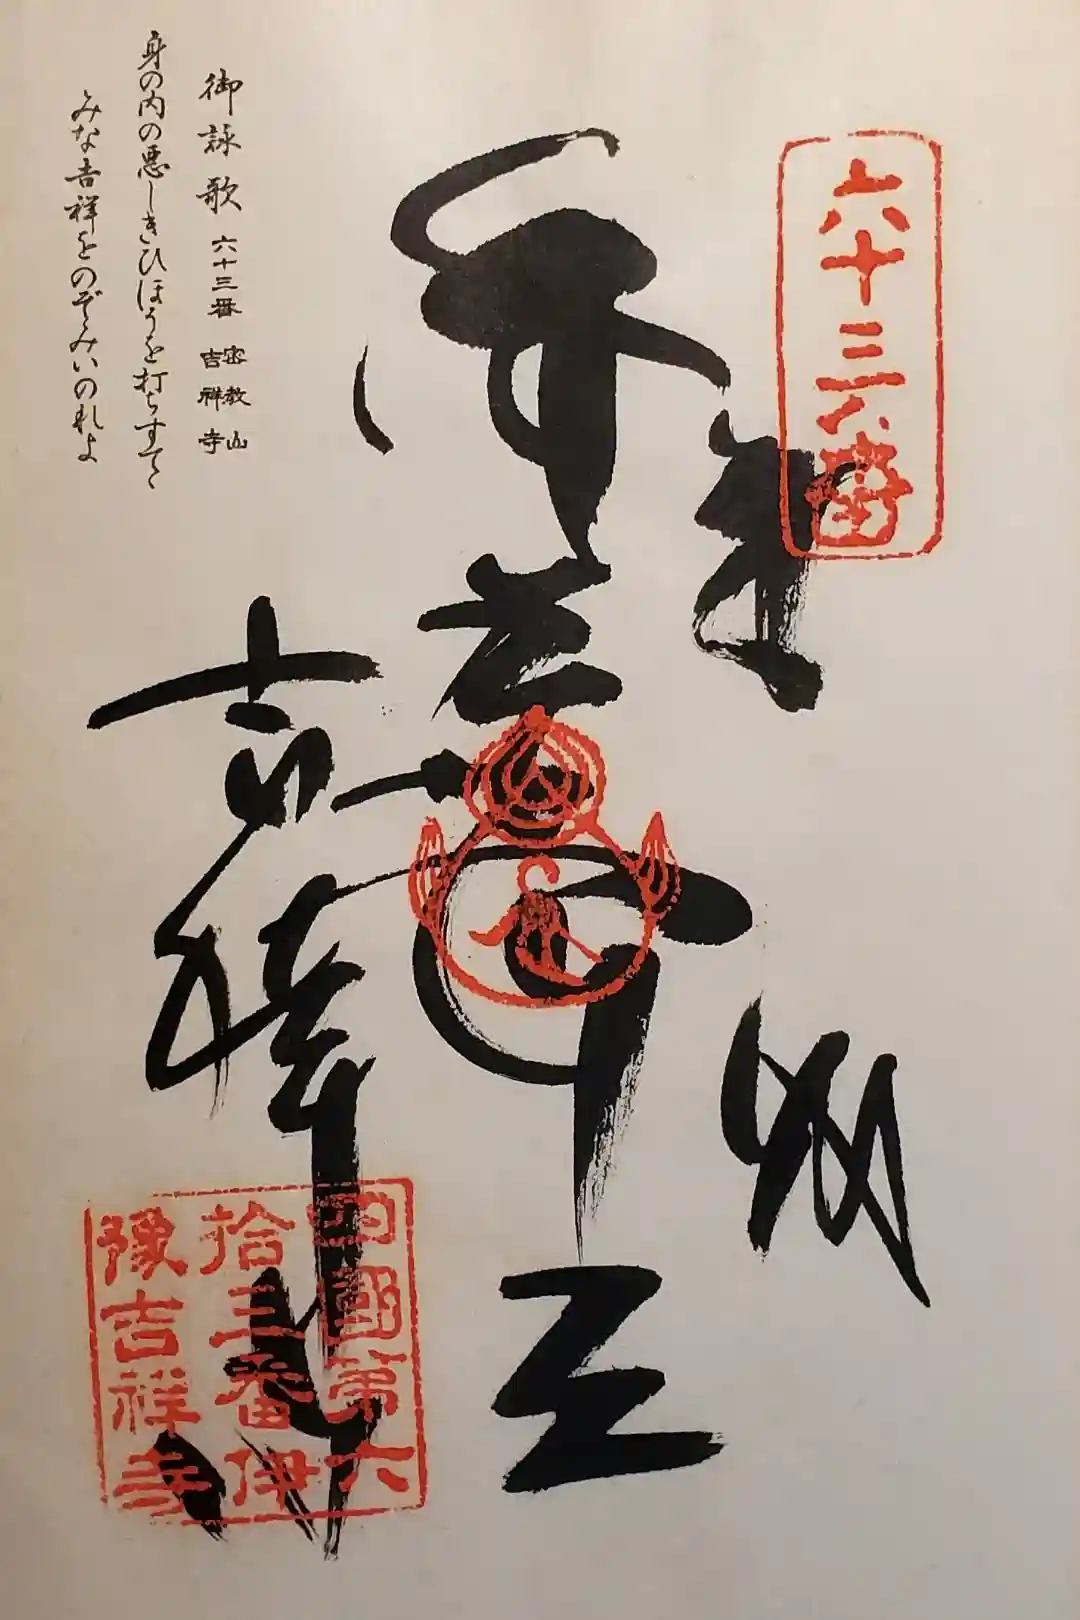 六十三番
奉納
毘沙門天
吉祥寺
四國第六
拾三番伊
豫吉祥寺
御詠歌 六十三番 密教山 吉祥寺
身の内の悪しきひほうを打ちすてて
みな吉祥をのぞみいのれよ